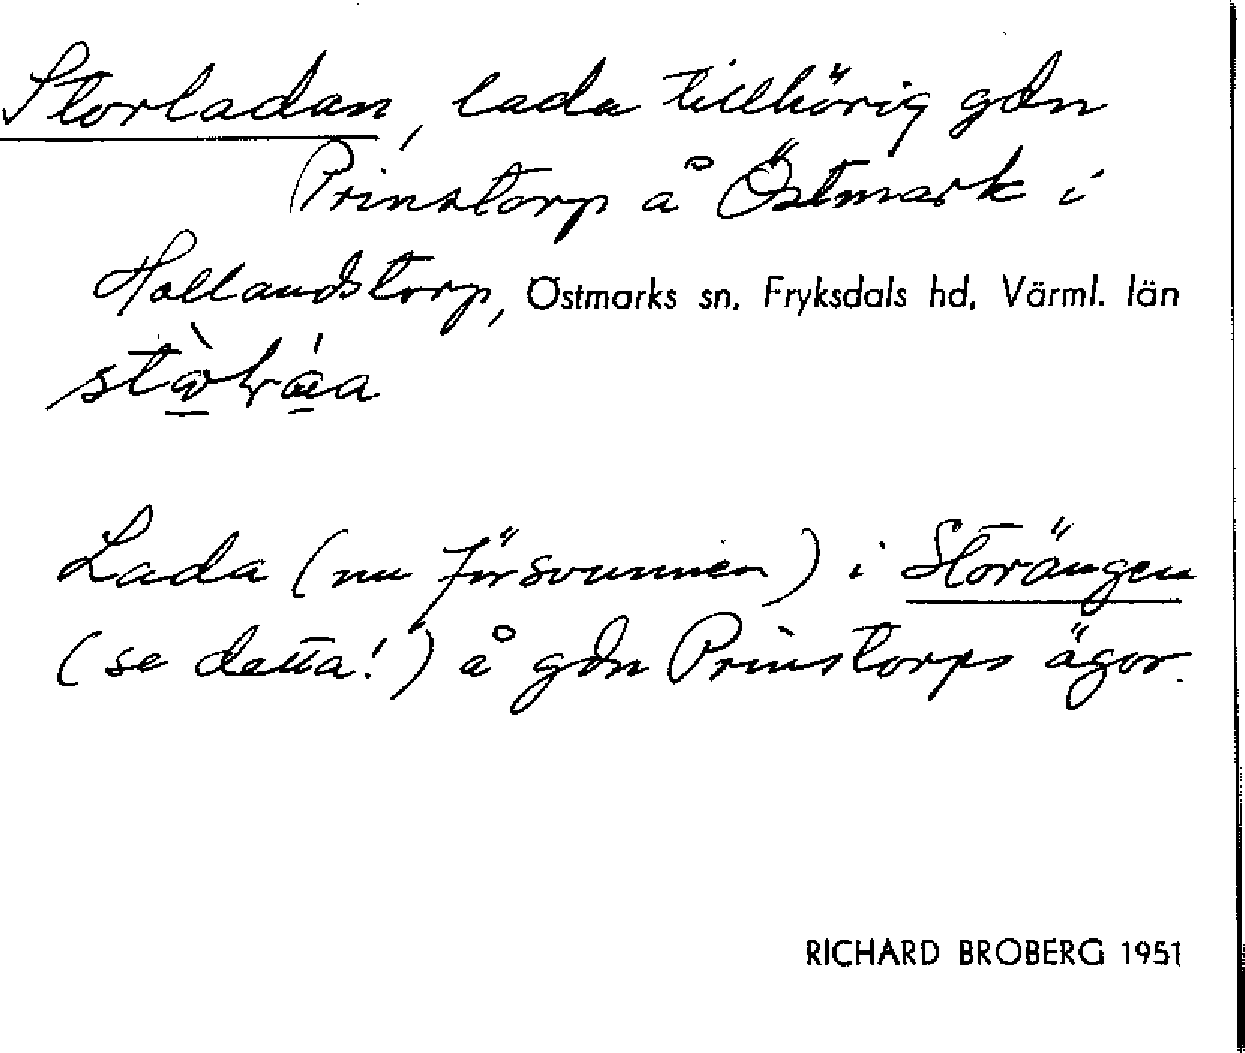 Storladan, lada tillhörig gdn
Prinstorp å Östmark i
Hollandstorp, Östmarks sn. Fryksdals hd, Värml. län
Lada (nu försvunnen) i Storängen
(se detta!) å gdn Prinstorps ägor.
RICHARD BROBERG 1951